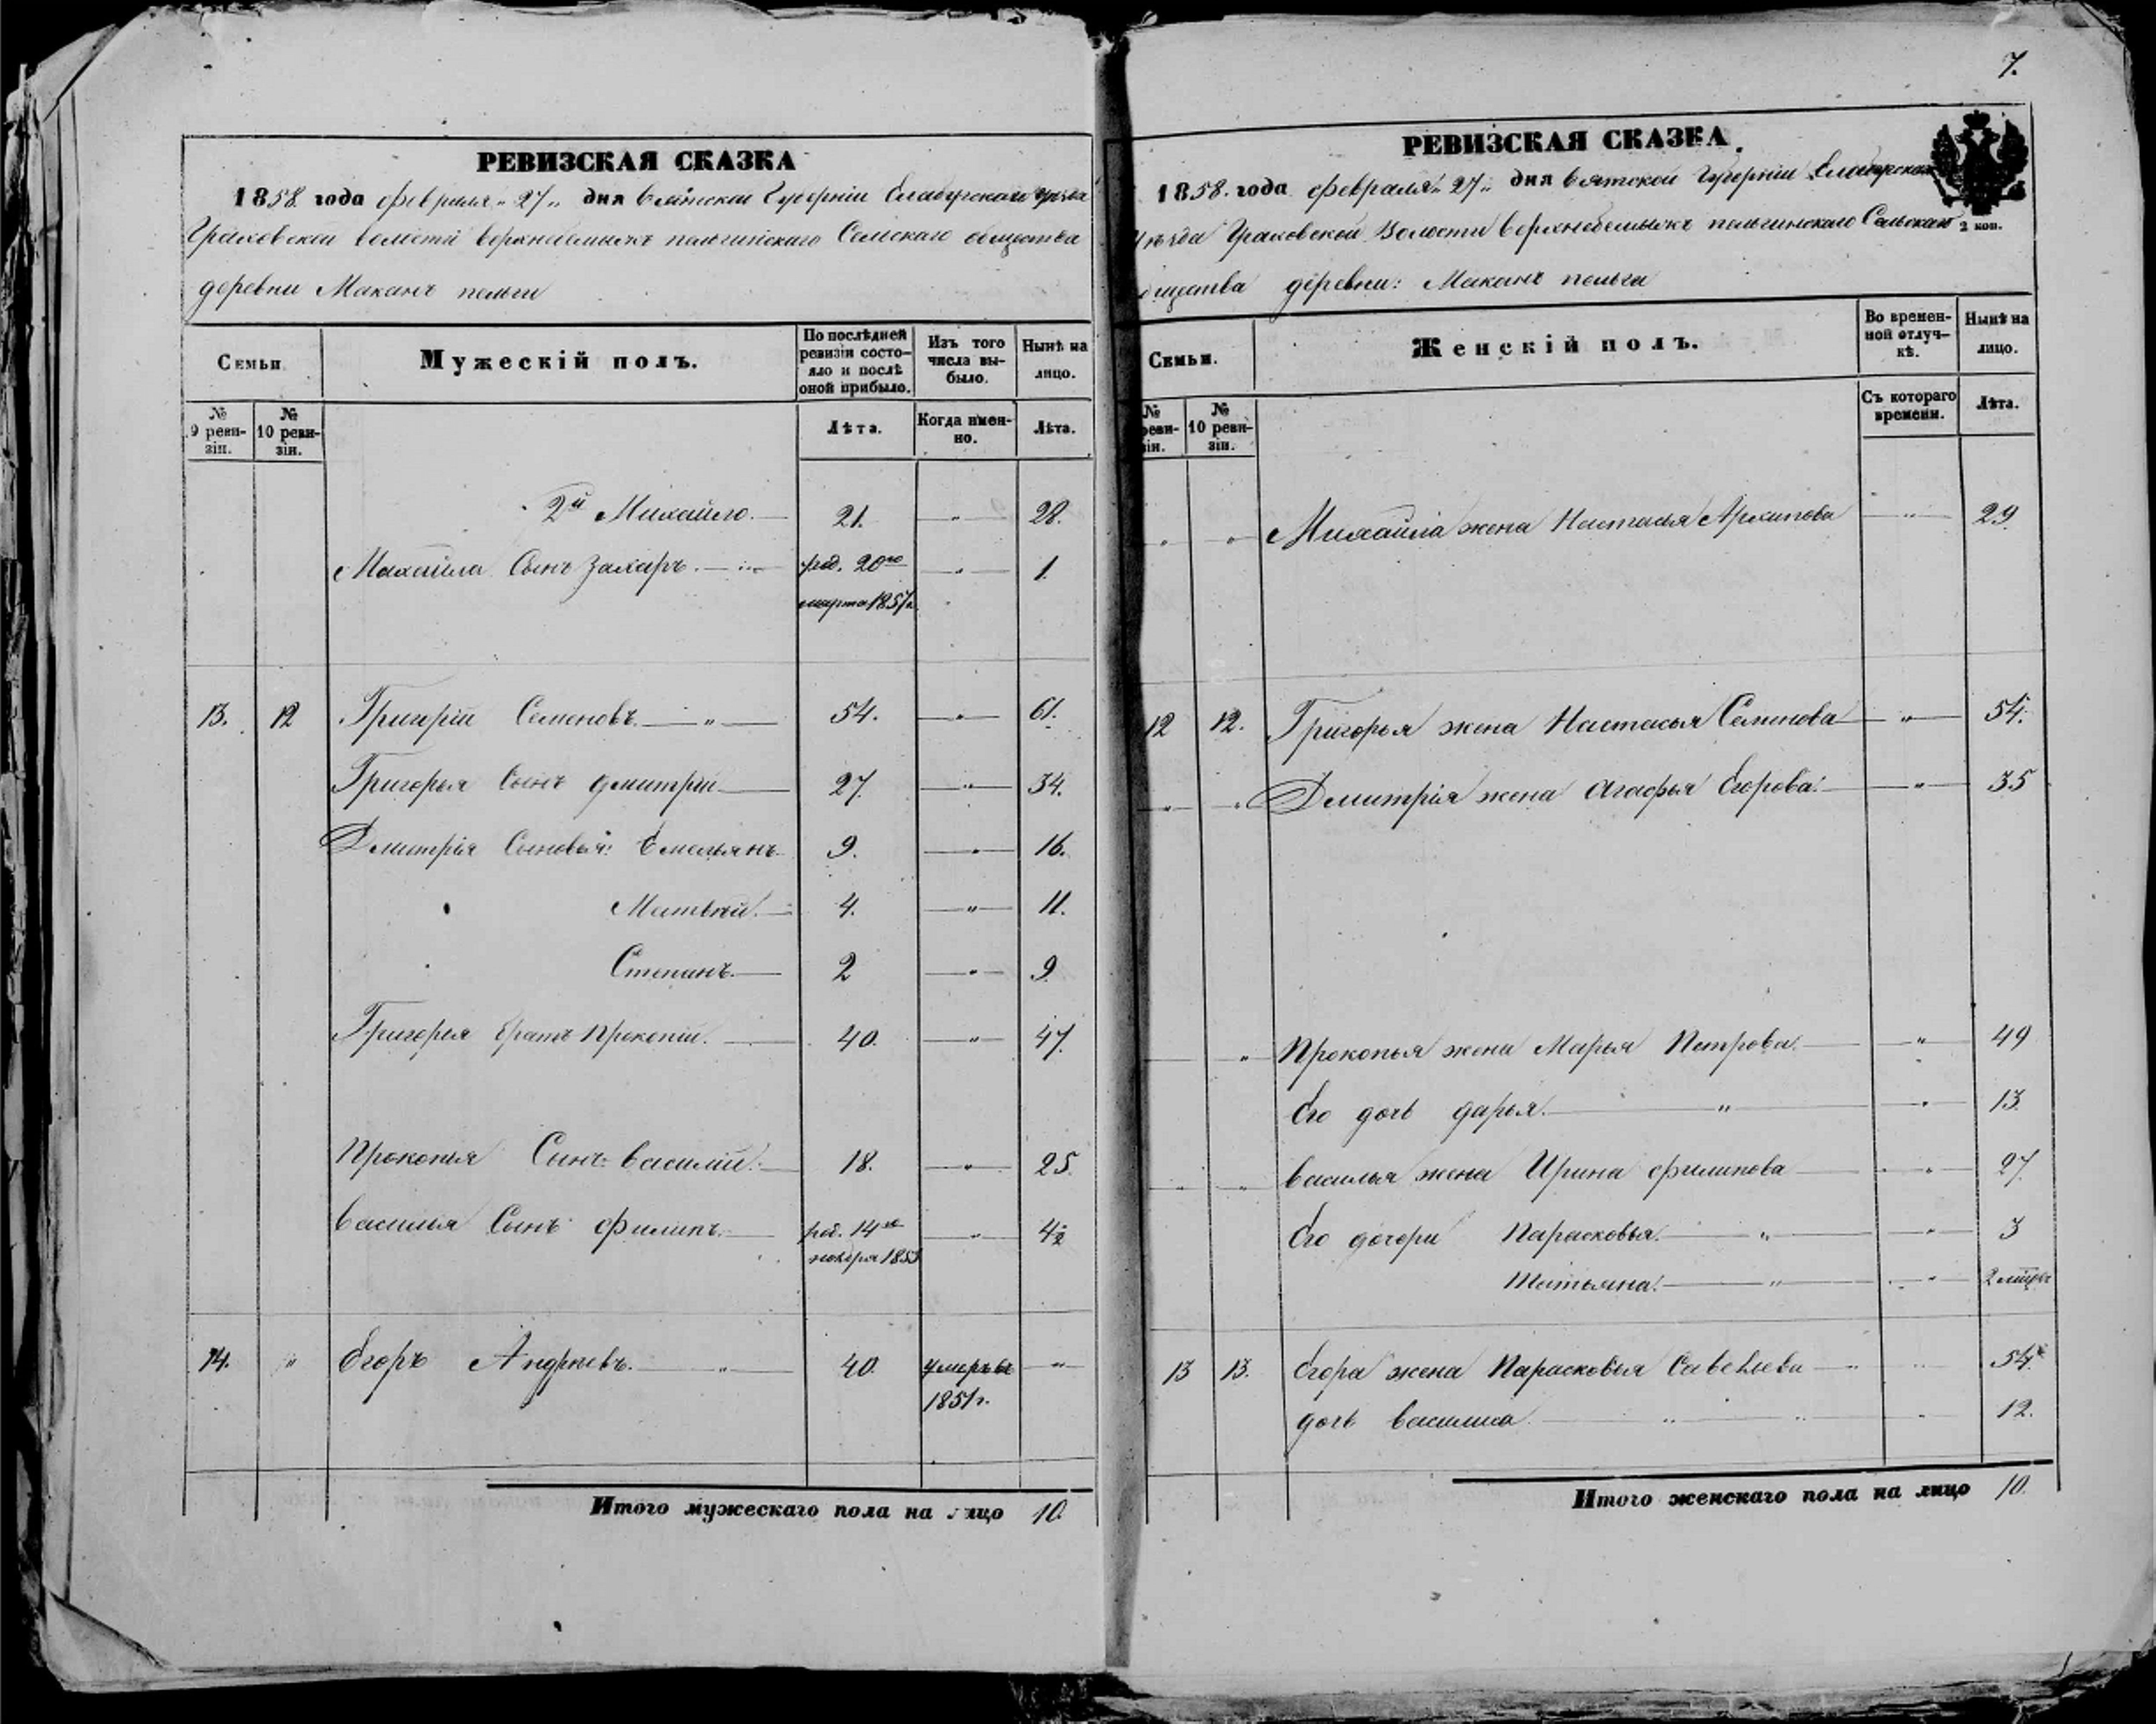 РЕВИЗСКАЯ СКАЗКА
1858 года февраля „27„ дня Вятской Губерніи Елабугскаго уѣзда
Граховской волости Верхнебемыжъ пельгинскаго Сельскаго общества
деревни Маканъ пельги
Семьи.
Мужескій полъ.
По послѣдней ревизіи состо-
яло и послѣ оной прибыло.
Изъ того числа вы-
было.
Нынѣ на лицо.
№ 9 реви-
зіи.
№ 10 реви-
зіи.
Лѣта.
Когда имен-
но.
Лѣта.
2й Михайло. 21. „ 28.
Михайла Сынъ Захаръ. род. 20го „ 1.
марта 1857г.
13. 12 Григорій Семеновъ „ 54. „ 61.
Григорья Сынъ Дмитрій 27. „ 34.
Дмитрія Сыновья: Емельянъ 9. „ 16.
Матвѣй. 4. „ 11.
Степанъ. 2 „ 9
Григорья братъ Прокопій. 40. „ 47.
Прокопья Сынъ Василій. 18. „ 25.
Василья Сынъ Филипъ. род. 14го „ 4½
ноября 1853
14. „ Егоръ Андреевъ. „ 40. умеръ въ „
1851г.
Итого мужескаго пола на лицо 10.
7.
РЕВИЗСКАЯ СКАЗКА.
1858. года февраля „27„ дня Вятской Губерніи Елабугскаго
уѣзда Граховской Волости Верхнебемыжъ пельгинскаго Сельскаго
2 коп.
общества деревни: Маканъ пельга
Семьи.
Женскій полъ.
Во времен-
ной отлуч-
кѣ.
Нынѣ на лицо.
№ реви-
зіи.
№ 10 реви-
зіи.
Съ котораго времени.
Лѣта.
„ „ Михайла жена Настасья Архипова „ 29.
12 12. Григорья жена Настасья Семенова „ 54.
„ „ Дмитрія жена Агафья Егорова. „ 35
„ Прокопья жена Марья Петрова. „ 49
Его дочь Дарья. „ „ 13.
„ „ Василья жена Ирина Филипова „ 27.
Его дочери Парасковья. „ „ 3
Татьяна. „ „ 2
13 13. Егора жена Парасковья Савельева „ „ 54.
дочь Василиса. „ „ „ 12.
Итого женскаго пола на лицо 10.